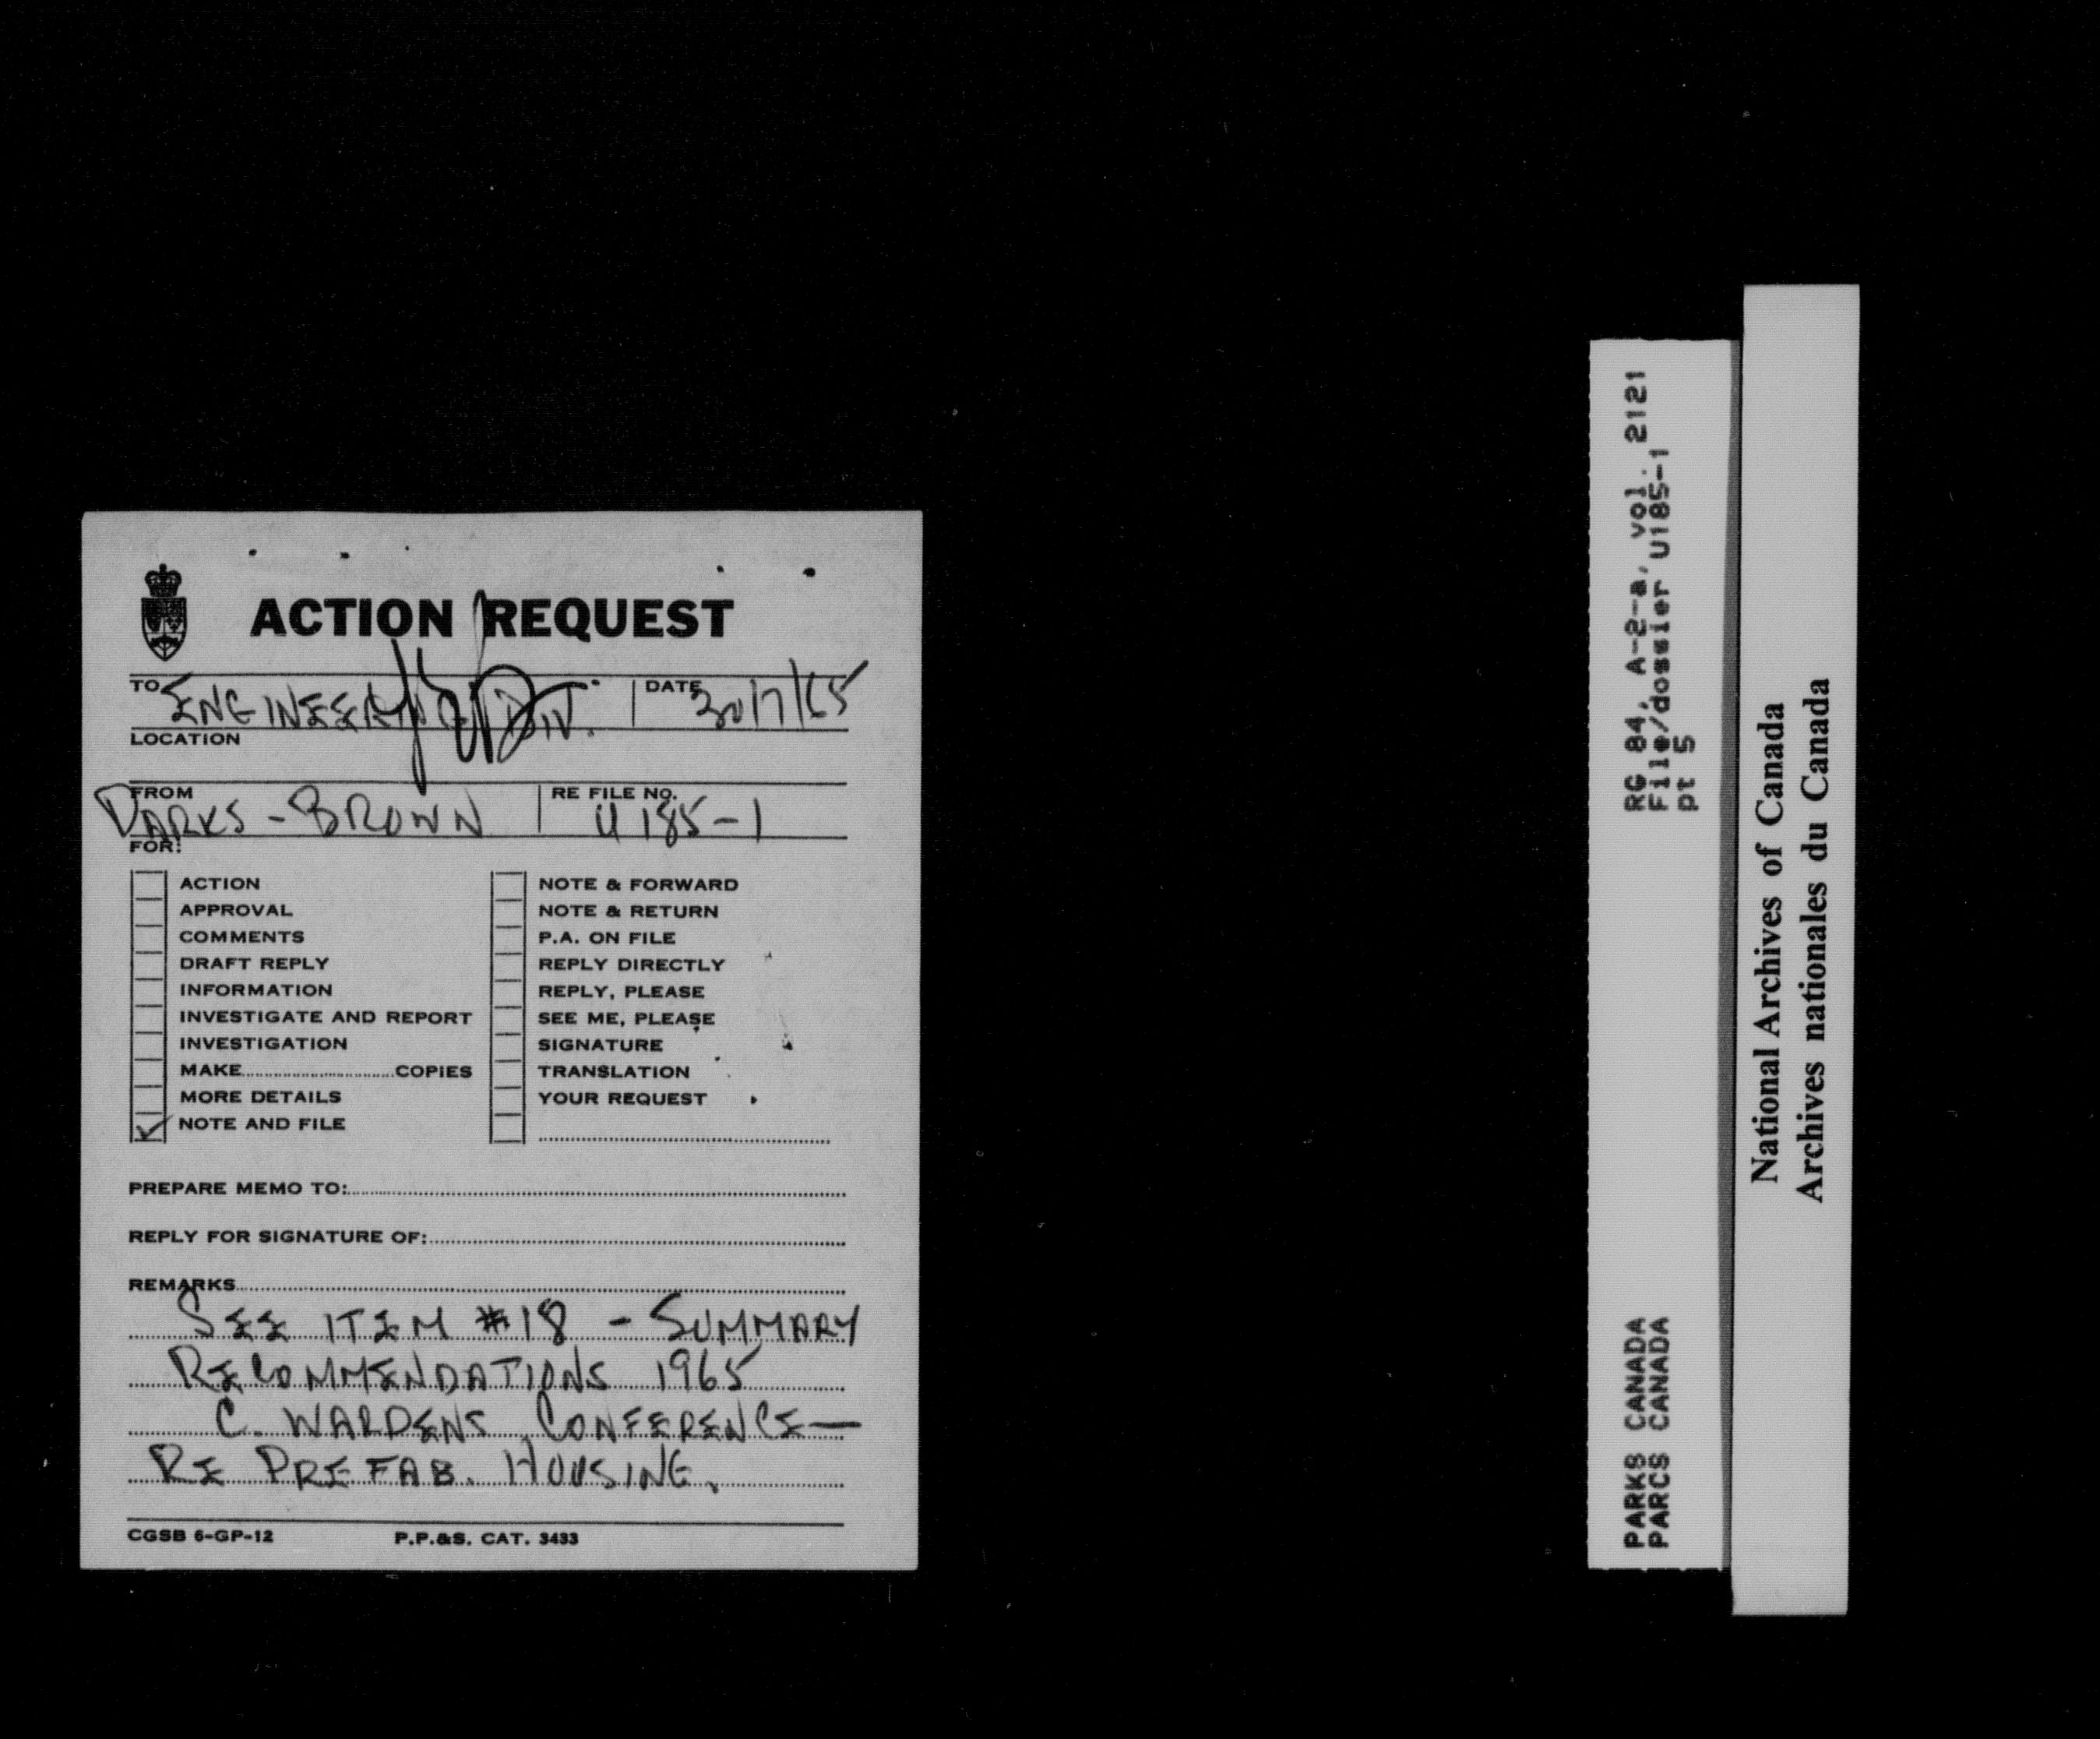 ACTION REQUEST
TO ENGINEERING DIV. DATE 30/7/65
LOCATION
FROM PARKS - BROWN RE FILE NO. U185-1
FOR:
ACTION
APPROVAL
COMMENTS
DRAFT REPLY
INFORMATION
INVESTIGATE AND REPORT
INVESTIGATION
MAKE COPIES
MORE DETAILS
✓ NOTE AND FILE
NOTE & FORWARD
NOTE & RETURN
P.A. ON FILE
REPLY DIRECTLY
REPLY, PLEASE
SEE ME, PLEASE
SIGNATURE
TRANSLATION
YOUR REQUEST
PREPARE MEMO TO:
REPLY FOR SIGNATURE OF:
REMARKS
SEE ITEM #18 - SUMMARY
RECOMMENDATIONS 1965
C. WARDENS CONFERENCE—
RE PREFAB. HOUSING.
CGSB 6-GP-12 P.P.&S. CAT. 3433
RG 84, A-2-a, vol. 2121
File/dossier U185-1
pt 5
PARKS CANADA
PARCS CANADA
National Archives of Canada
Archives nationales du Canada